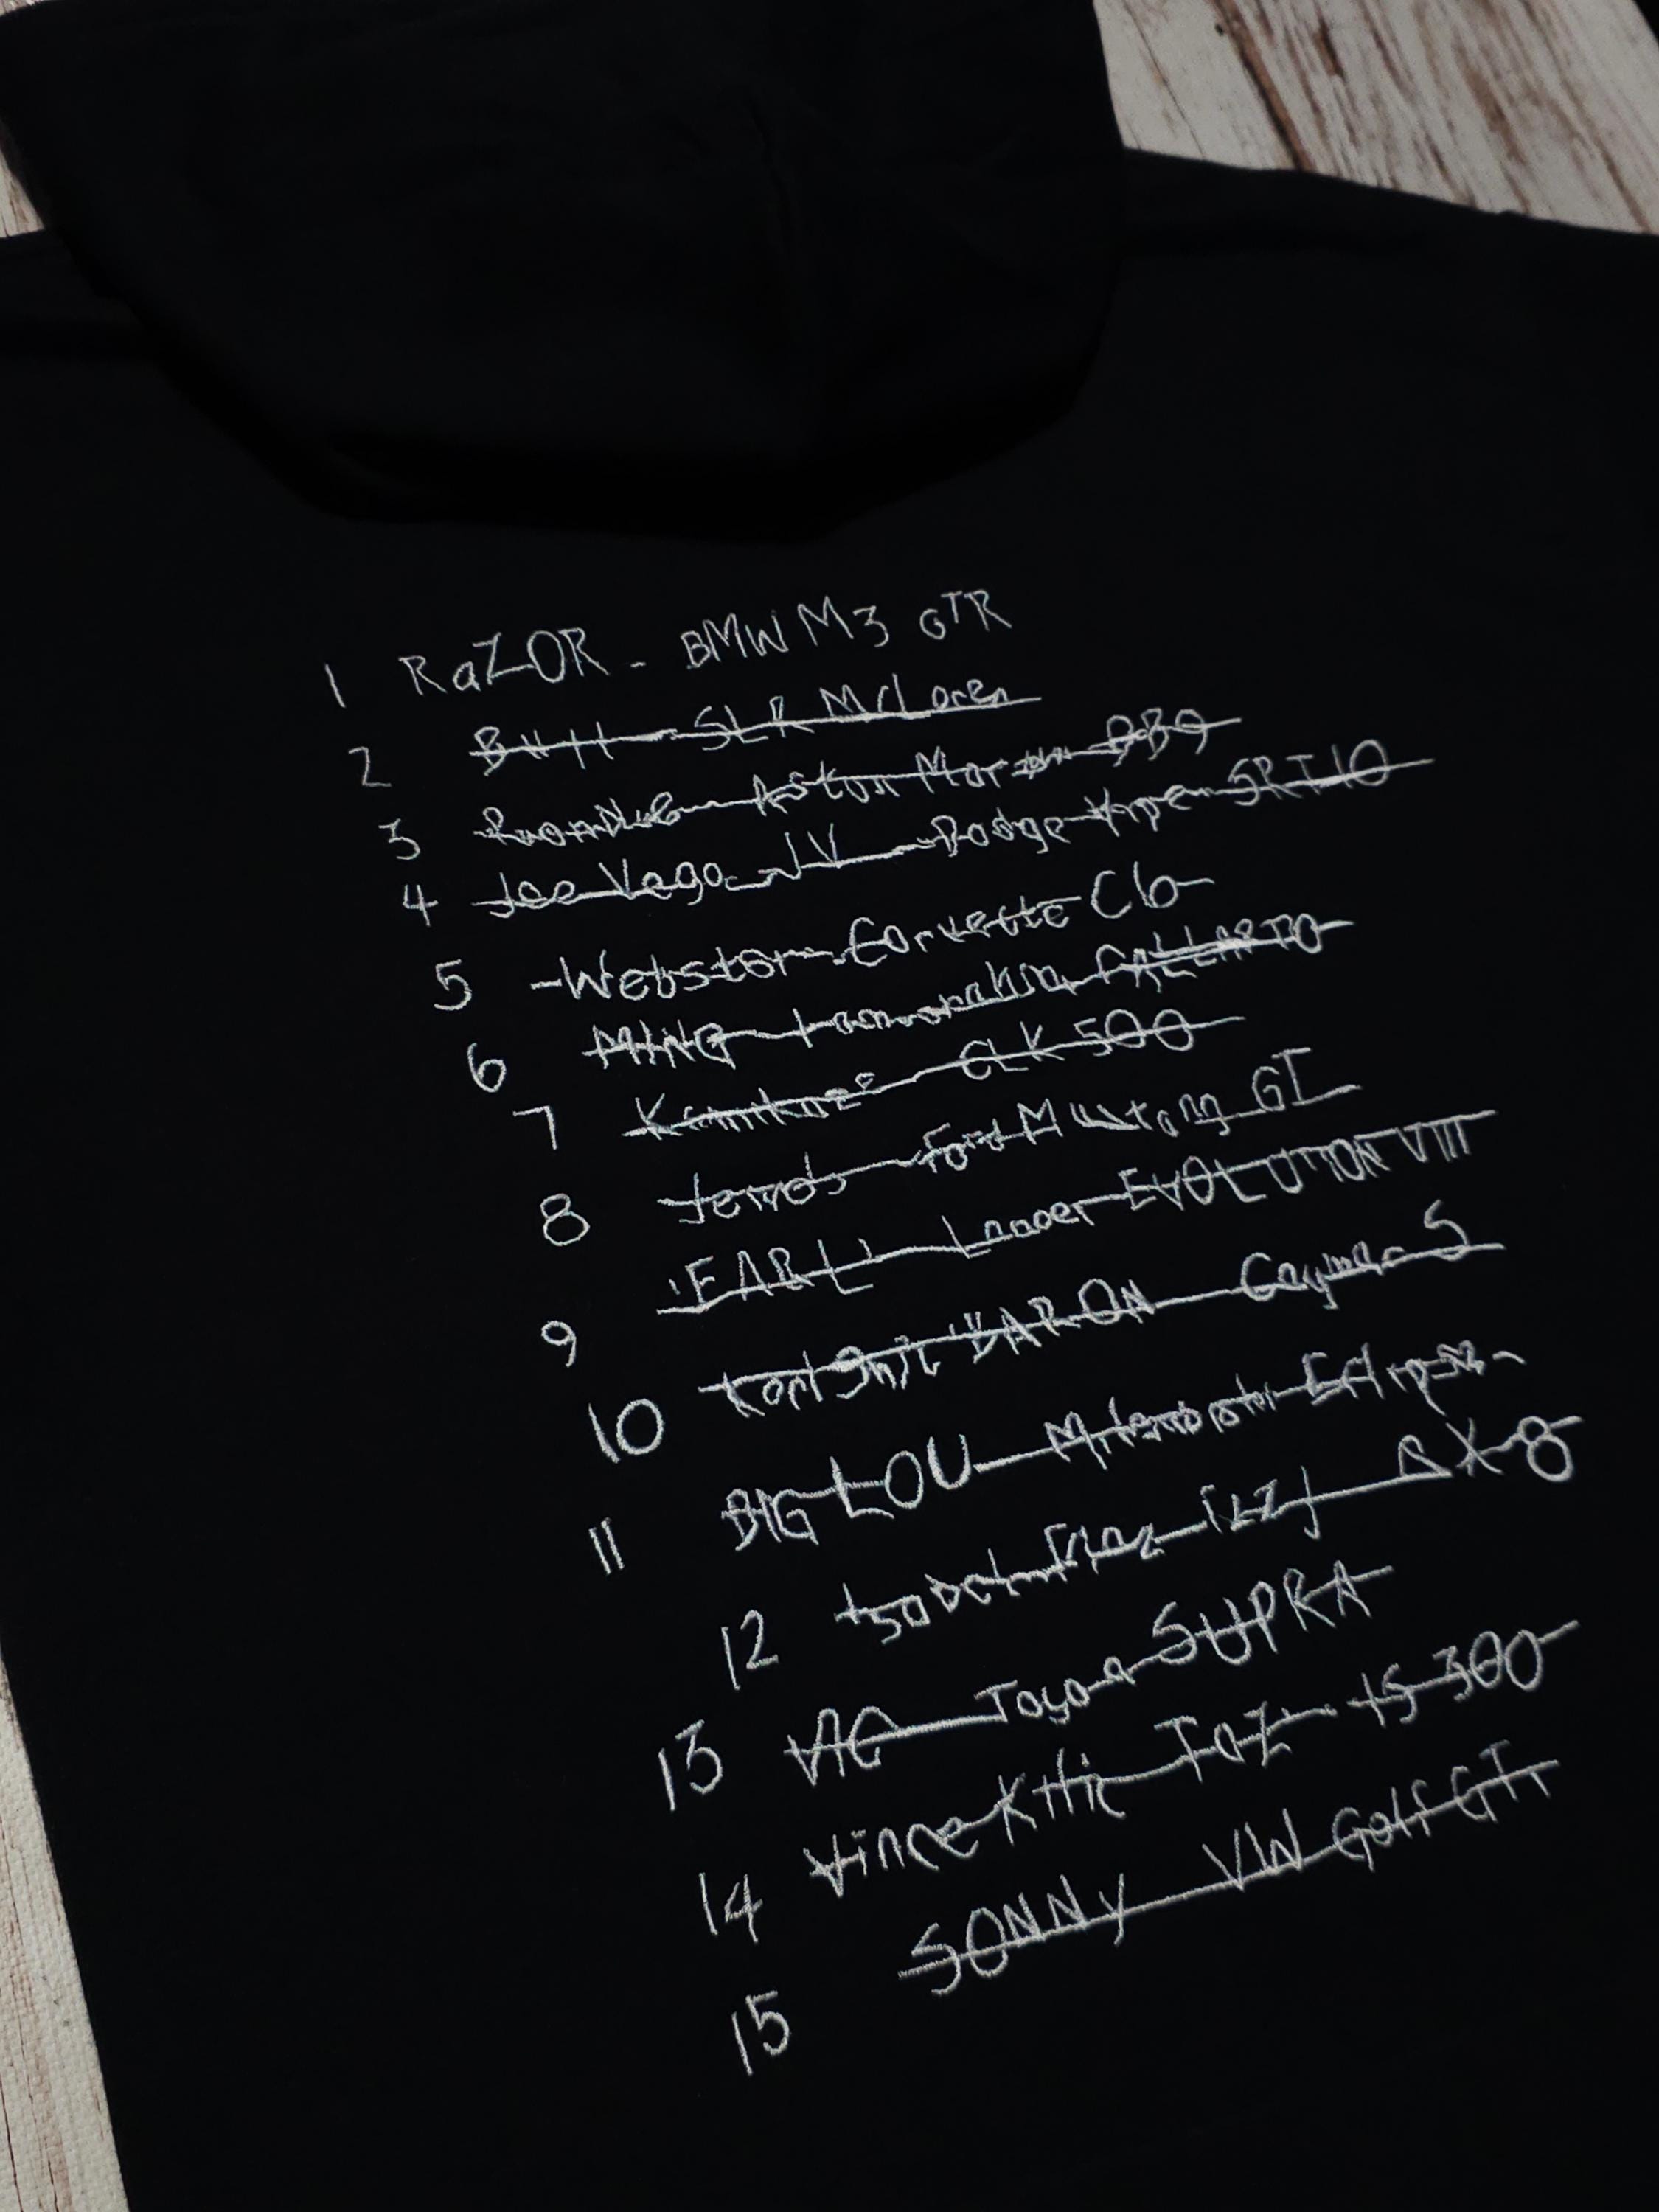 1 RaZOR - BMW M3 GTR
2 Bull - SLR McLaren
3 Ronnie - Aston Martin DB9
4 Joe Vega JV - Dodge Viper SRT 10
5 - Webster - Corvette C6
6 MING - Lamborghini GALLARDO
7 CLK 500
8 Jewels - Ford Mustang GT
9 "EARL" - Lancer EVOLUTION VIII
10 BARON - Cayman S
11 BIG LOU - Mitsubishi Eclipse
12 RX-8
13 VIC - Toyota SUPRA
14 Vince Kilic TAZ - IS 300
15 SONNY VW Golf GTI